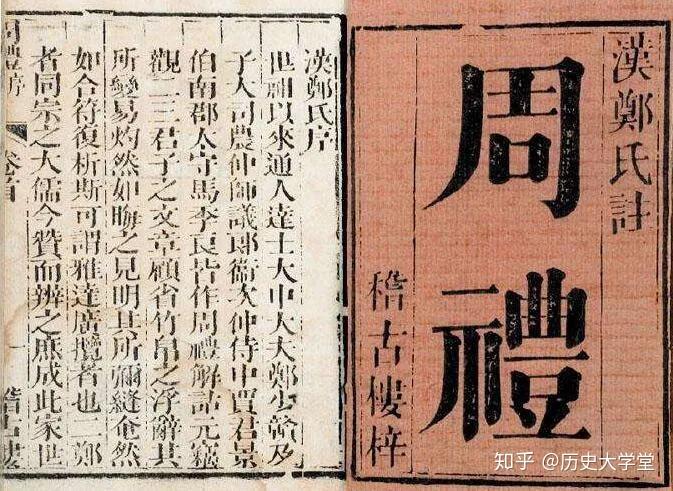 漢鄭氏註
周禮
稽古樓梓
漢鄭氏序
世祖以來通人達士大中大夫鄭少贛及
子大司農仲師議郎衞次仲侍中賈君景
伯南郡太守馬季良皆作周禮解詁元竊
觀二三君子之文章顧省竹帛之浮辭其
所變易灼然如晦之見明其所彌縫奄然
如合符復析斯可謂雅達廣攬者也二鄭
者同宗之大儒今贊而辨之庶成此家世
周禮序 卷首 一 稽古樓
知乎 @历史大学堂